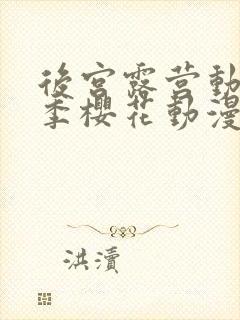 後宮露营動
季櫻花動漫
洪瀆